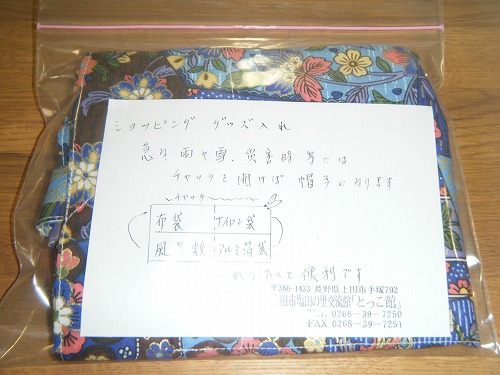 ショッピング グッズ入れ
急な雨や雪、災害時等には
チャックを開けば帽子になります
チャック
布袋 ナイロン袋
風呂敷 アルミ箔袋
おくと便利です
〒386-1433 長野県上田市手塚792
田市塩田の里交流館「とっこ館」
TEL 0268-39-7250
FAX 0268-39-7251